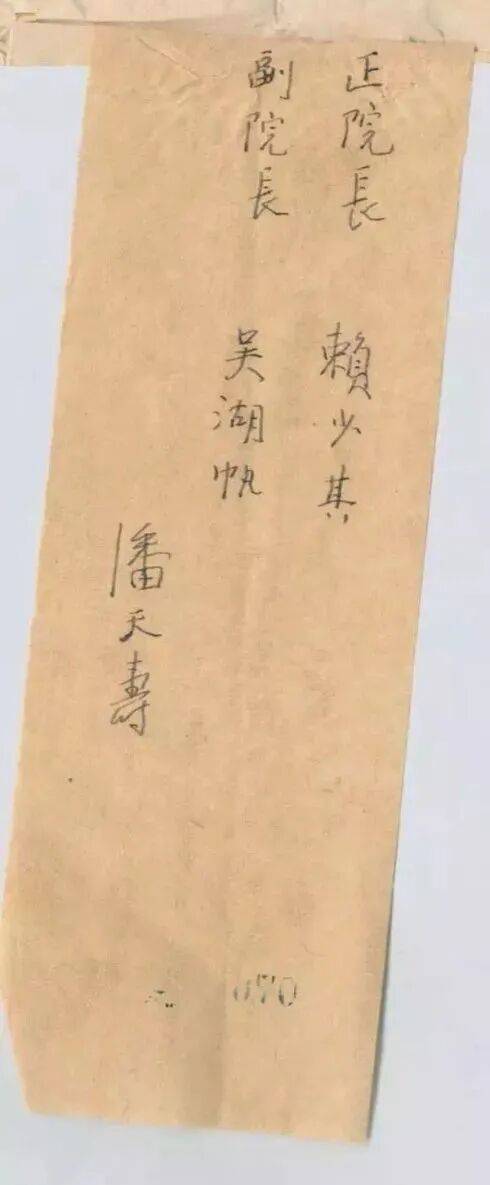 正院長 賴少其
副院長 吴湖帆
潘天壽